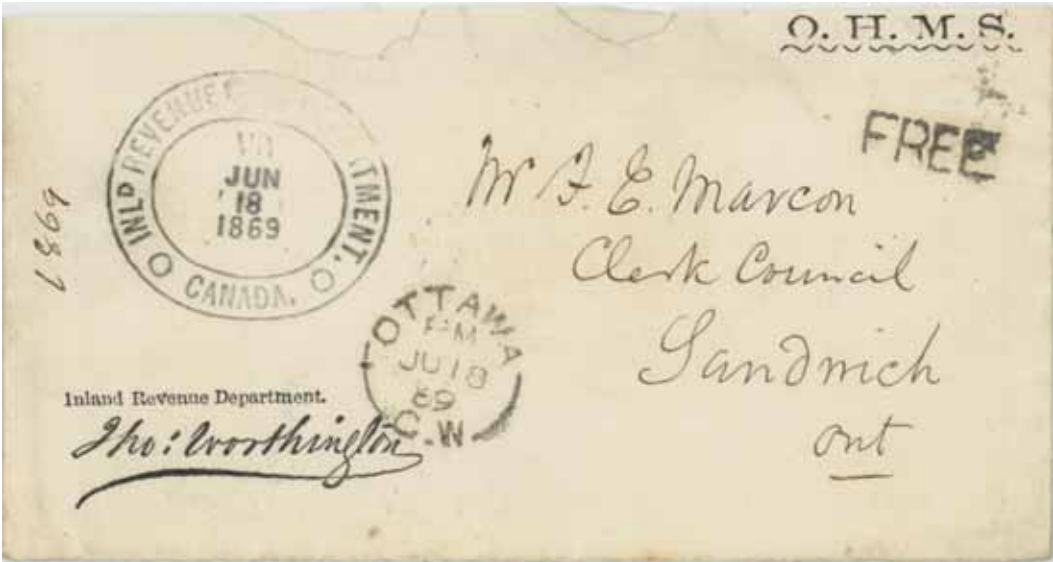 O. H. M. S.
FREE
INLD REVENUE
TMENT.
JUN
18
1869
CANADA.
1869
Mr F. E. Marcon
Clerk Council
Sandwich
Ont
OTTAWA
PM
JU 18
69
C.W.
Inland Revenue Department.
Tho: Worthington